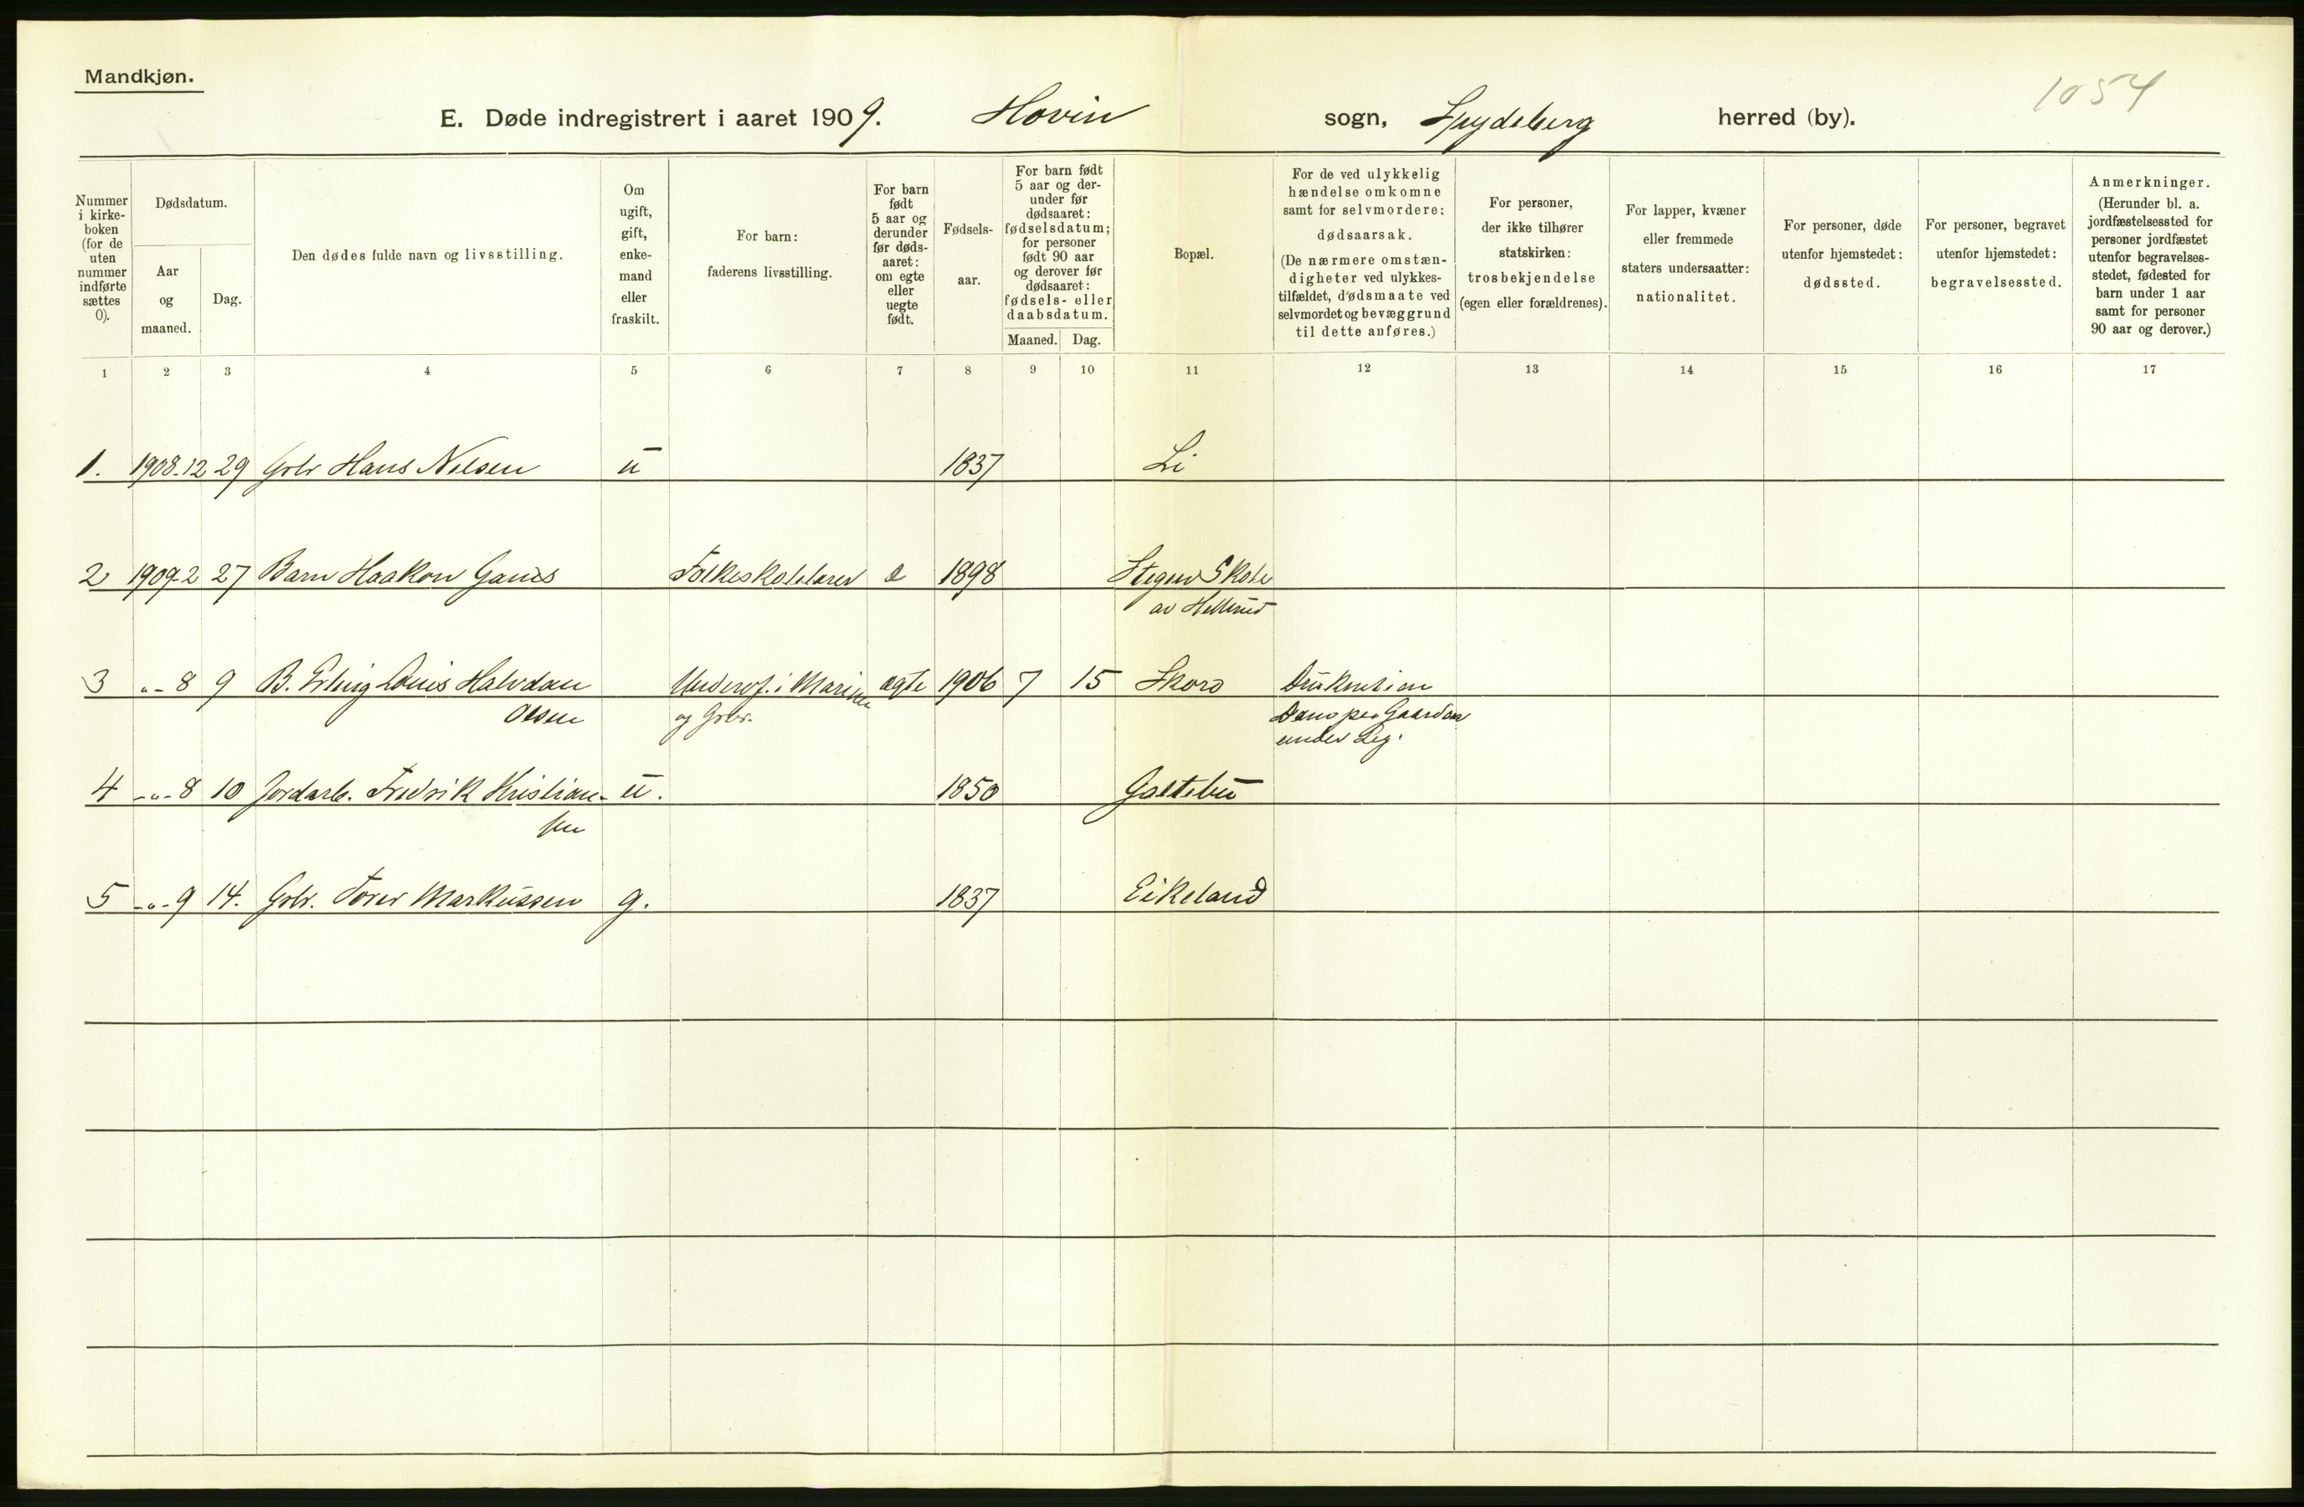 Mandkjøn.
1054
E. Døde indregistrert i aaret 1909. Hovin sogn, Spydeberg herred (by).
Nummer i kirke-boken (for de uten nummer indførte sættes 0).
Dødsdatum.
Aar og maaned.
Dag.
Den dødes fulde navn og livsstilling.
Om ugift, gift, enke-mand eller fraskilt.
For barn: faderens livsstilling.
For barn født 5 aar og derunder før døds-aaret: om egte eller uegte født.
Fødsels-aar.
For barn født 5 aar og der-under før dødsaaret: fødselsdatum; for personer født 90 aar og derover før dødsaaret: fødsels- eller daabsdatum.
Maaned. Dag.
Bopæl.
For de ved ulykkelig hændelse omkomne samt for selvmordere: dødsaarsak. (De nærmere omstæn-digheter ved ulykkes-tilfældet, dødsmaate ved selvmordet og bevæggrund til dette anføres.)
For personer, der ikke tilhører statskirken: trosbekjendelse (egen eller forældrenes).
For lapper, kvæner eller fremmede staters undersaatter: nationalitet.
For personer, døde utenfor hjemstedet: dødssted.
For personer, begravet utenfor hjemstedet: begravelsessted.
Anmerkninger. (Herunder bl. a. jordfæstelsessted for personer jordfæstet utenfor begravelses-stedet, fødested for barn under 1 aar samt for personer 90 aar og derover.)
1 2 3 4 5 6 7 8 9 10 11 12 13 14 15 16 17
1. 1908.12 29 Grbr Hans Nilsen u 1837 Li
2 1909-2 27 Barn Haakon Folkeskolelærer e 1898 Skole
av Hellerud
3 "- 8 9 B. Erling Louis Halvdan Underof. i Marinen ægte 1906 7 15
Olsen og Grbr. Gaarden
under Lig.
4 -"- 8 10 Jordarb. Fredrik Kristian- u. 1850 Galtebu
sen
5 -"- 9 14. Grbr. Torer Markussen g. 1837 Eikeland